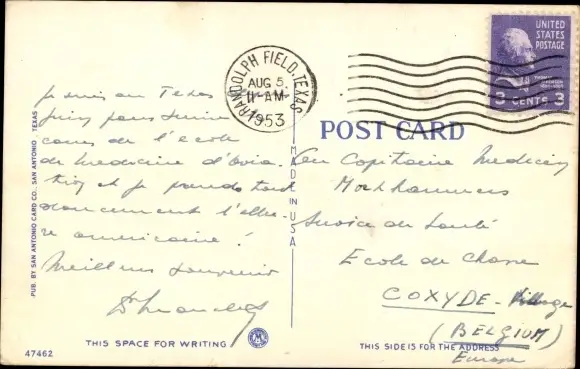 UNITED
STATES
POSTAGE
3 CENTS 3
RANDOLPH FIELD, TEXAS
AUG 5
11-AM
1953
POST CARD
Je suis au Texas
pour suivre
cours de l'école
de médecine d'avia-
tion et je prends tout
doucement l'allu-
re américaine !
Meilleur souvenir
Capitaine Medecin
Service de Santé
Ecole de Chasse
COXYDE - Village
(BELGIUM)
Europe
MADE IN USA
PUB. BY SAN ANTONIO CARD CO., SAN ANTONIO, TEXAS
THIS SPACE FOR WRITING
THIS SIDE IS FOR THE ADDRESS
47462